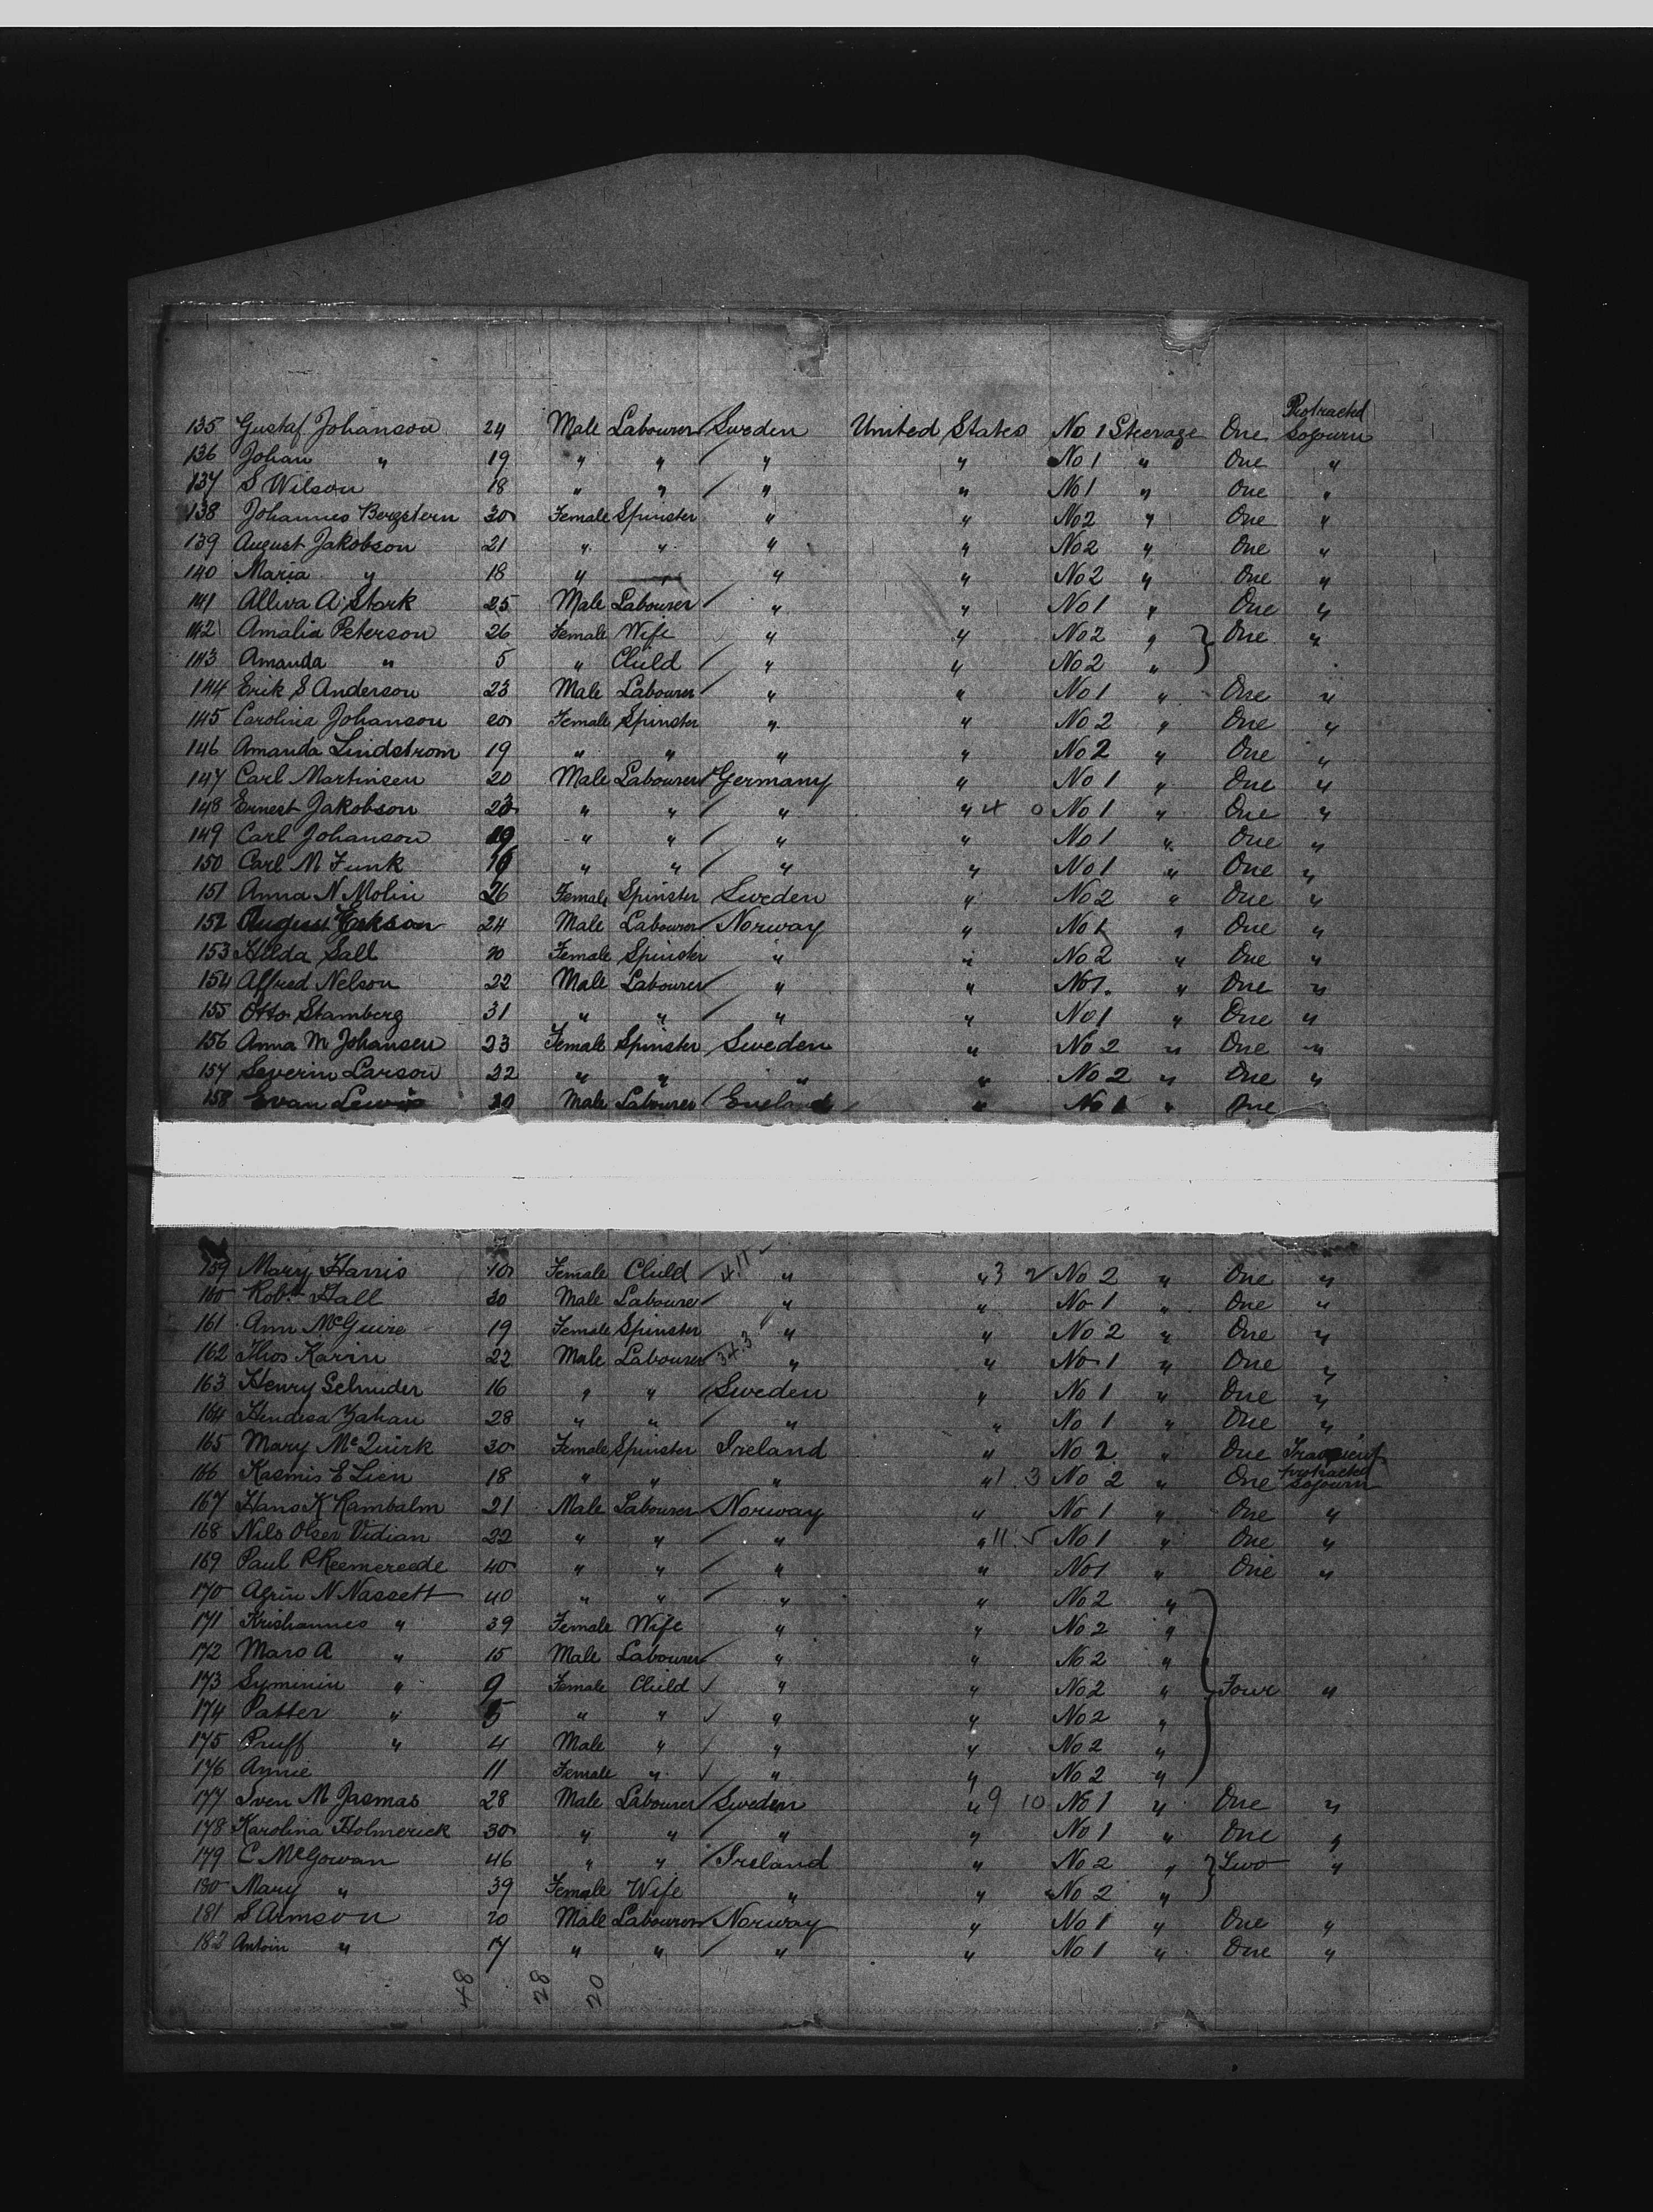 Protracted
135 Gustaf Johanson 24 Male Labourer Sweden United States No 1 Steerage One Sojourn
136 Johan " 19 " " " " No 1 " One "
137 S Wilson 18 " " " " No 1 " One "
138 Johannes Bergstern 30 Female Spinster " " No 2 " One "
139 August Jakobson 21 " " " " No 2 " One "
140 Maria " 18 " " " " No 2 " One "
141 Alliva A. Stark 25 Male Labourer " " No 1 " One "
142 Amalia Peterson 26 Female Wife " " No 2 " One "
143 Amanda " 5 " Child " " No 2 "
144 Erik S Anderson 23 Male Labourer " " No 1 " One "
145 Carolina Johanson 20 Female Spinster " " No 2 " One "
146 Amanda Lindstrom 19 " " " " No 2 " One "
147 Carl Martinsen 20 Male Labourer Germany " No 1 " One "
148 Ernest Jakobson " " " " 4 0 No 1 " One "
149 Carl Johanson 19 " " " " No 1 " One "
150 Carl M Funk " " " " No 1 " One "
151 Anna N Molin 26 Female Spinster Sweden " No 2 " One "
152 August Erikson 24 Male Labourer Norway " No 1 " One "
153 Hilda Sall 20 Female Spinster " " No 2 " One "
154 Alfred Nelson 22 Male Labourer " " No 1. " One "
155 Otto Stamberg 31 " " " " No 1 " One "
156 Anna M Johansen 23 Female Spinster Sweden " No 2 " One "
157 Severin Larson 22 " " " " No 2 " One "
158 Evan Lewis 30 Male Labourer England " No 1 " One
159 Mary Harris 10 Female Child 4.11 " " 3 2 No 2 " One "
160 Robt Hall 30 Male Labourer " " No 1 " One "
161 Ann McGuire 19 Female Spinster " " No 2 " One "
162 Thos Karin 22 Male Labourer 34.3 " " No 1 " One "
163 Henry Schnider 16 " " Sweden " No 1 " One "
164 Hindesa Zahan 28 " " " " No 1 " One "
165 Mary McQuirk 30 Female Spinster Ireland " No 2 " One Transient
166 Kasmis E Lien 18 " " " " 1.3 No 2 " One protracted sojourn
167 Hans K Rambalm 21 Male Labourer Norway " No 1 " One "
168 Nils Olsen Vidian 22 " " " " 11.5 No 1 " One "
169 Paul P Reemereede 40 " " " " No 1 " One "
170 Agrin N Nassett 40 " " " " No 2 "
171 Krishannes " 39 Female Wife " " No 2 "
172 Mars A " 15 Male Labourer " " No 2 "
173 Syminin " 9 Female Child " " No 2 " Four "
174 Patter " 5 " " " " No 2 "
175 Pruff " 4 Male " " " No 2 "
176 Annie 11 Female " " " No 2 "
177 Sven M Jasmas 28 Male Labourer Sweden " 9 10 No 1 " One "
178 Karolina Holmerick 30 " " " " No 1 " One "
179 C McGowan 46 " " Ireland " No 2 " Two "
180 Mary " 39 Female Wife " " No 2 "
181 S Armson 20 Male Labourer Norway " No 1 " One "
182 Antoin " 17 " " " " No 1 " One "
48 28 20